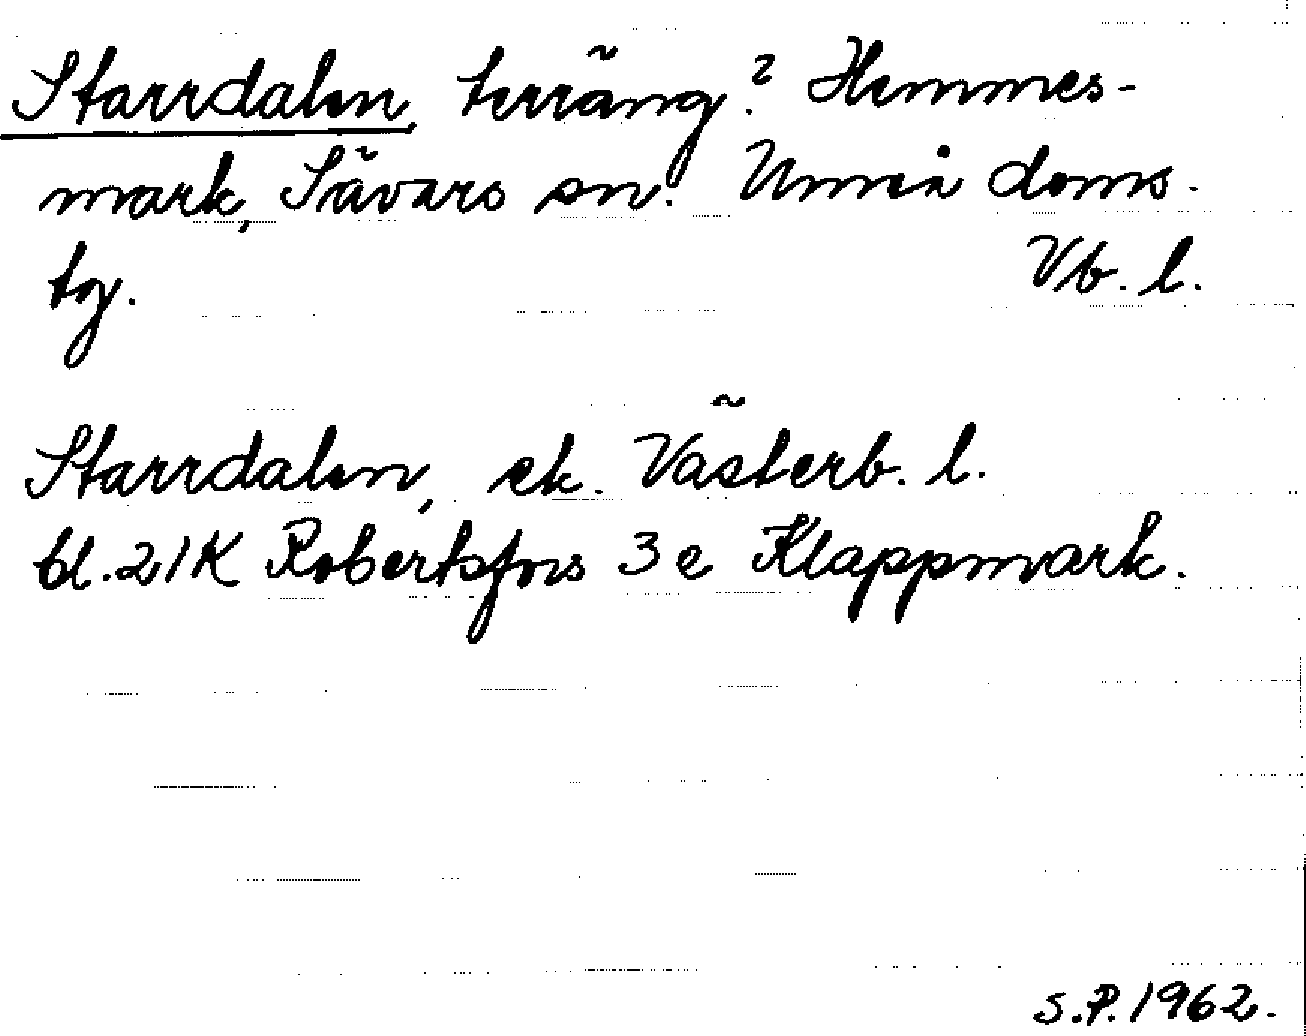 Starrdalen, terräng? Hemmes-
mark, Sävars sn. Umeå doms-
tg. Vb. l.
Starrdalen, ek. Västerb. l.
bl. 21K Robertsfors 3 e Klappmark.
S.P. 1962.